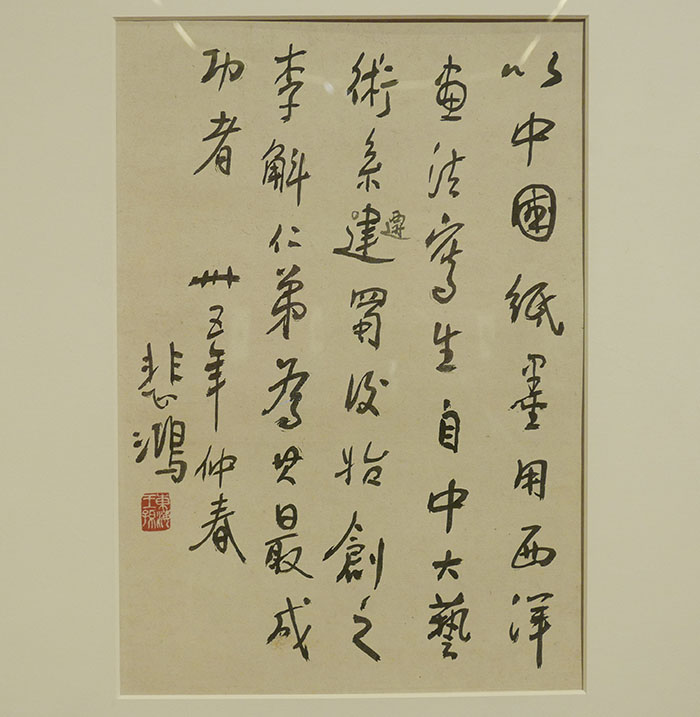 以中國紙墨用西洋
畫法寫生自中大藝
術系建蜀後始創之
遷
李斛仁弟為其最成
功者 卅五年仲春
悲鴻
東海王孫